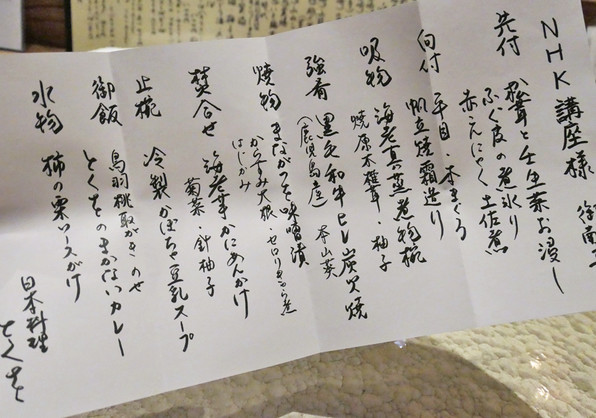 NHK講座様
先付
松茸と壬生菜お浸し
ふぐ皮の煮氷り
赤こんにゃく土佐煮
向付
平目・本まぐろ
帆立焼霜造り
吸物
海老真薯煮物椀
焼原木椎茸・柚子
強肴
黒毛和牛ヒレ炭火焼
(鹿児島産) 本山葵
焼物
まながつを味噌漬
からすみ大根・セロリきんぴら
はじかみ
焚合せ
海老芋かにあんかけ
菊菜・針柚子
止椀
冷製かぼちゃ豆乳スープ
御飯
鳥羽桃取がきのせ
とくをのまかないカレー
水物
柿の栗ソースがけ
日本料理
とくを